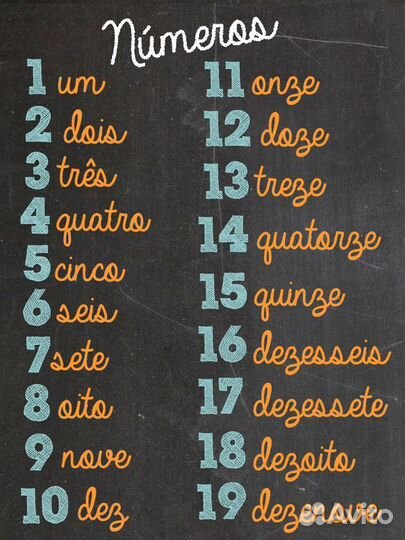 Números
1 um
2 dois
3 três
4 quatro
5 cinco
6 seis
7 sete
8 oito
9 nove
10 dez
11 onze
12 doze
13 treze
14 quatorze
15 quinze
16 dezesseis
17 dezessete
18 dezoito
19 dezenove
Avito